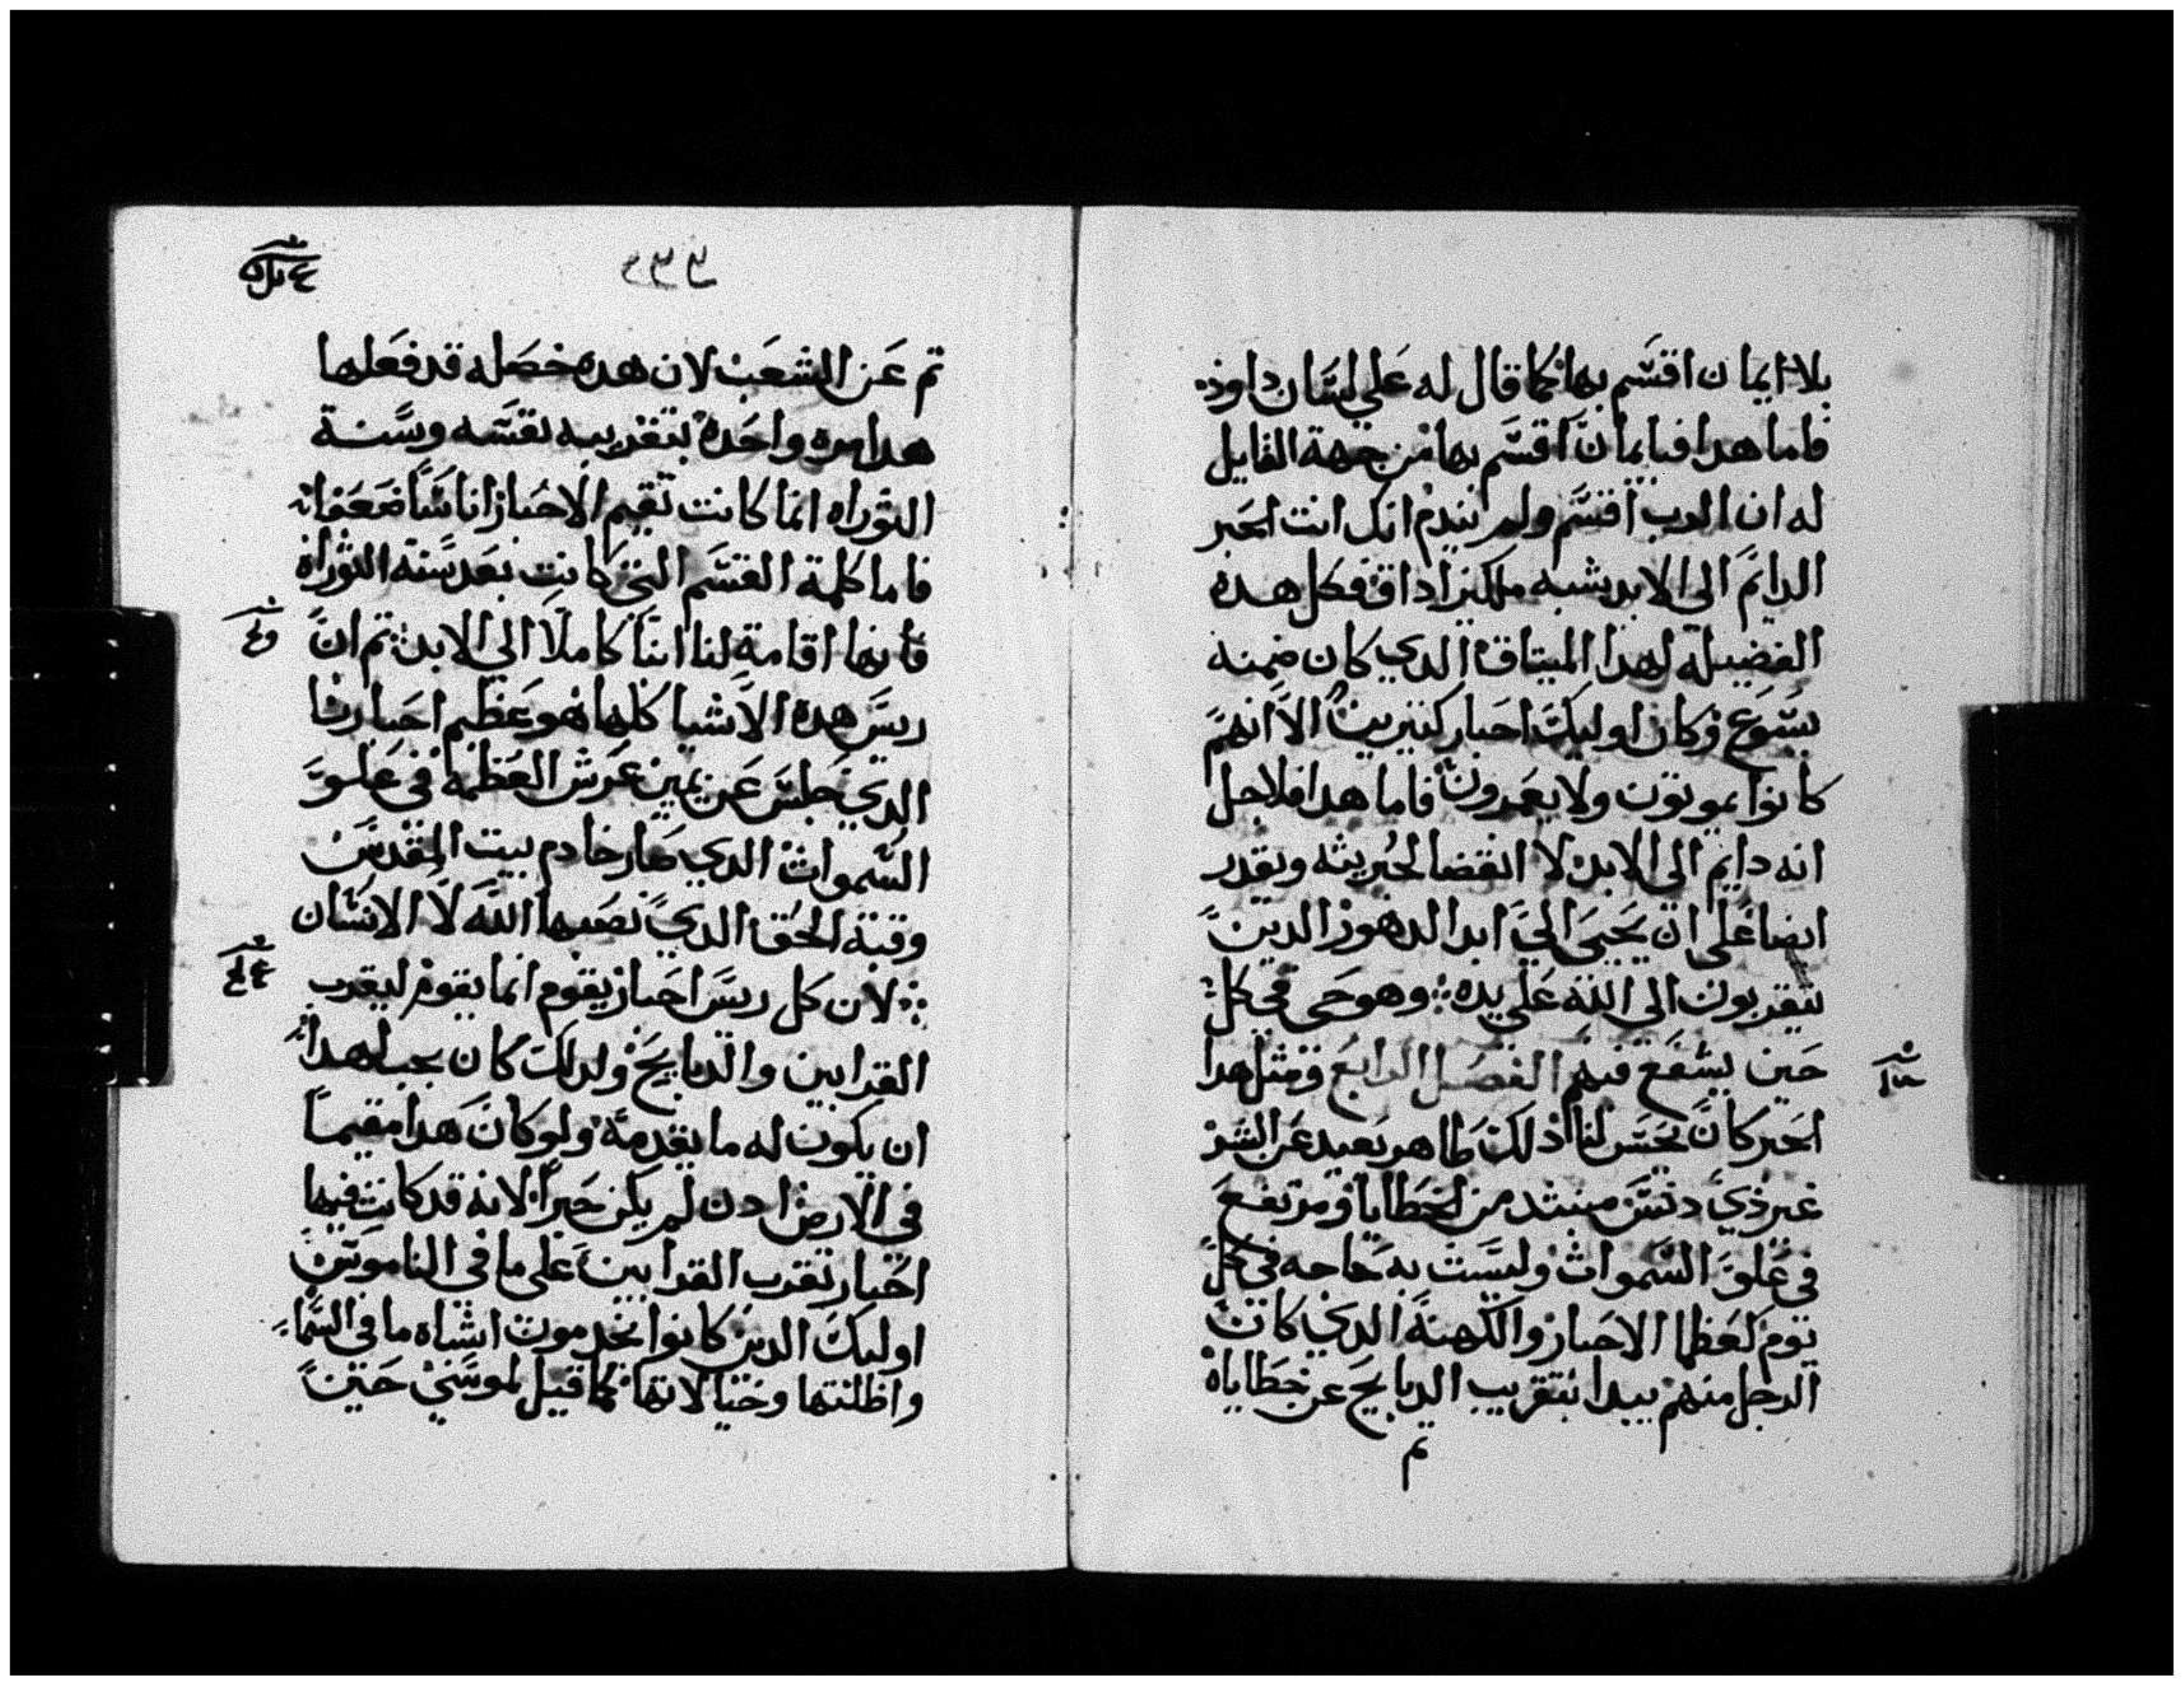 بلا ايمان اقسم بها كما قال له علي لسان داود
فاما هدا فبايمان اقسم بها من جهة القايل
له ان الرب اقسم ولم يندم انك انت الحبر
الدايم الي الابد يشبه ملكيزاداق فكل هده
الفضيله لهدا الميتاق الدي كان ضمنه
يسوع وكان اوليك احبار كتيرين الا انهم
كانوا يموتون ولا يعمرون فاما هدا فلاجل
انه دايم الي الابد لا انقضا لحبريته ويقدر
ايضا علي ان يحيي الي ابد الدهور الدين
يتقربون الي الله علي يده وهو حي في كل
حين يشفع فيهم الفصل الرابع ومتل هدا
الحبر كان يحسن لنا ادلك طاهر بعيد عن الشر
غير دي دنس مبتد من الخطايا ومرتفع
في علو السموات وليست به حاجه في كل
يوم كعظما الاحبار والكهنة الدي كان
الرجل منهم يبدا بتقريب الدبايح عن خطاياه
تم
٢٣٣
تم عن الشعب لان هده خصله قد فعلها
هدا مره واحده بتقريبه نفسه وسنة
التوراه انما كانت تقيم الاحبار اناسا ضعفا
فاما كلمة القسم التي كانت بعد سنه التوراه
فانها اقامة لنا ابنا كاملا الي الابد تم ان
ريس هده الاشيا كلها هو عظيم احبارنا
الدي جلس عن يمين عرش العظمه في علو
السموات الدي صار خادم بيت المقدس
وقبة الحق الدي نصبها الله لا الانسان
لان كل ريس احبار يقوم انما يقوم ليقرب
القرابين والدبايح ولدلك كان يجب لهدا
ان يكون له ما يقدمه ولو كان هدا مقيما
في الارض ادن لم يكن حبرا لانه قد كانت فيها
احبار تقرب القرابين علي ما في الناموس
اوليك الدين كانوا يخدمون اشباه ما في السما
واظلتها وخيالاتها كما قيل لموسي حين